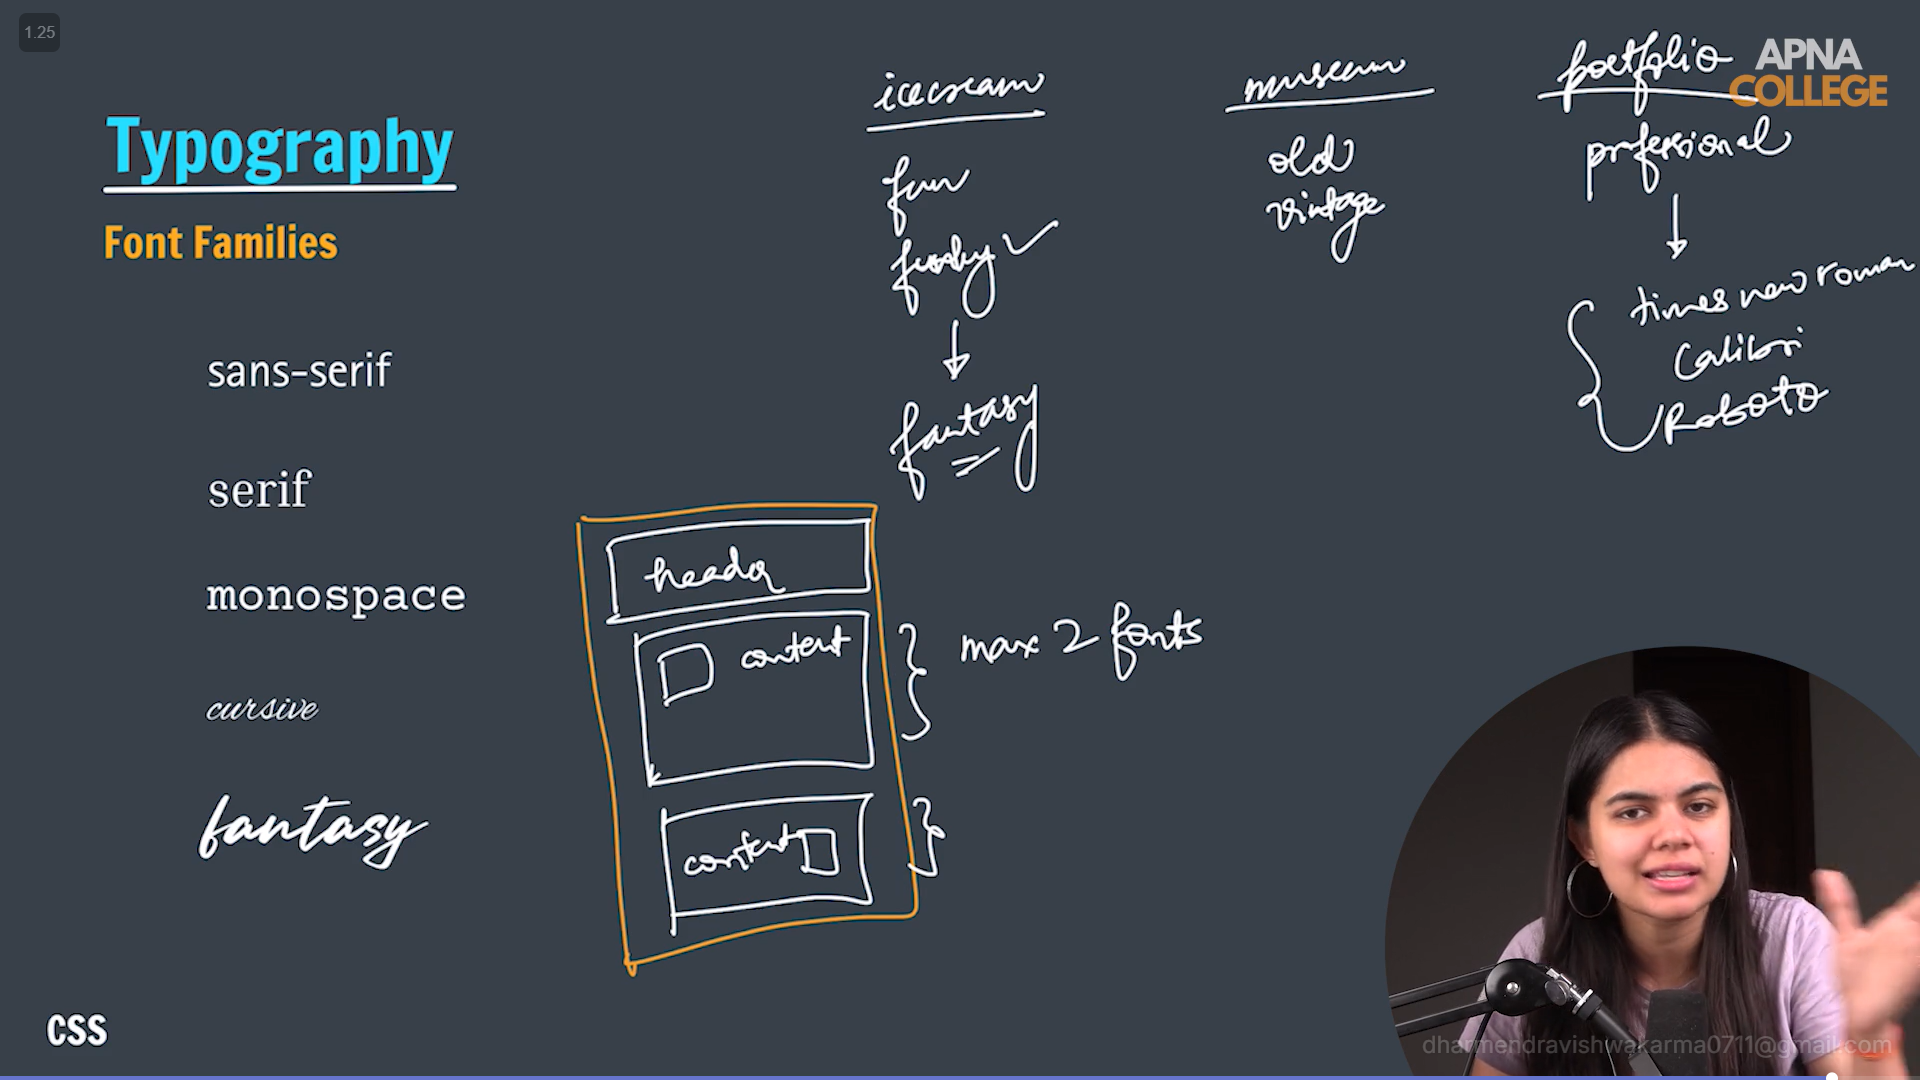 1.25
APNA
COLLEGE
Typography
Font Families
sans-serif
serif
monospace
cursive
fantasy
icecream
fun
funky
fantasy
museum
old
vintage
portfolio
professional
times new roman
Calibri
Roboto
header
content
content
max 2 fonts
CSS
dharmendravishwakarma0711@gmail.com